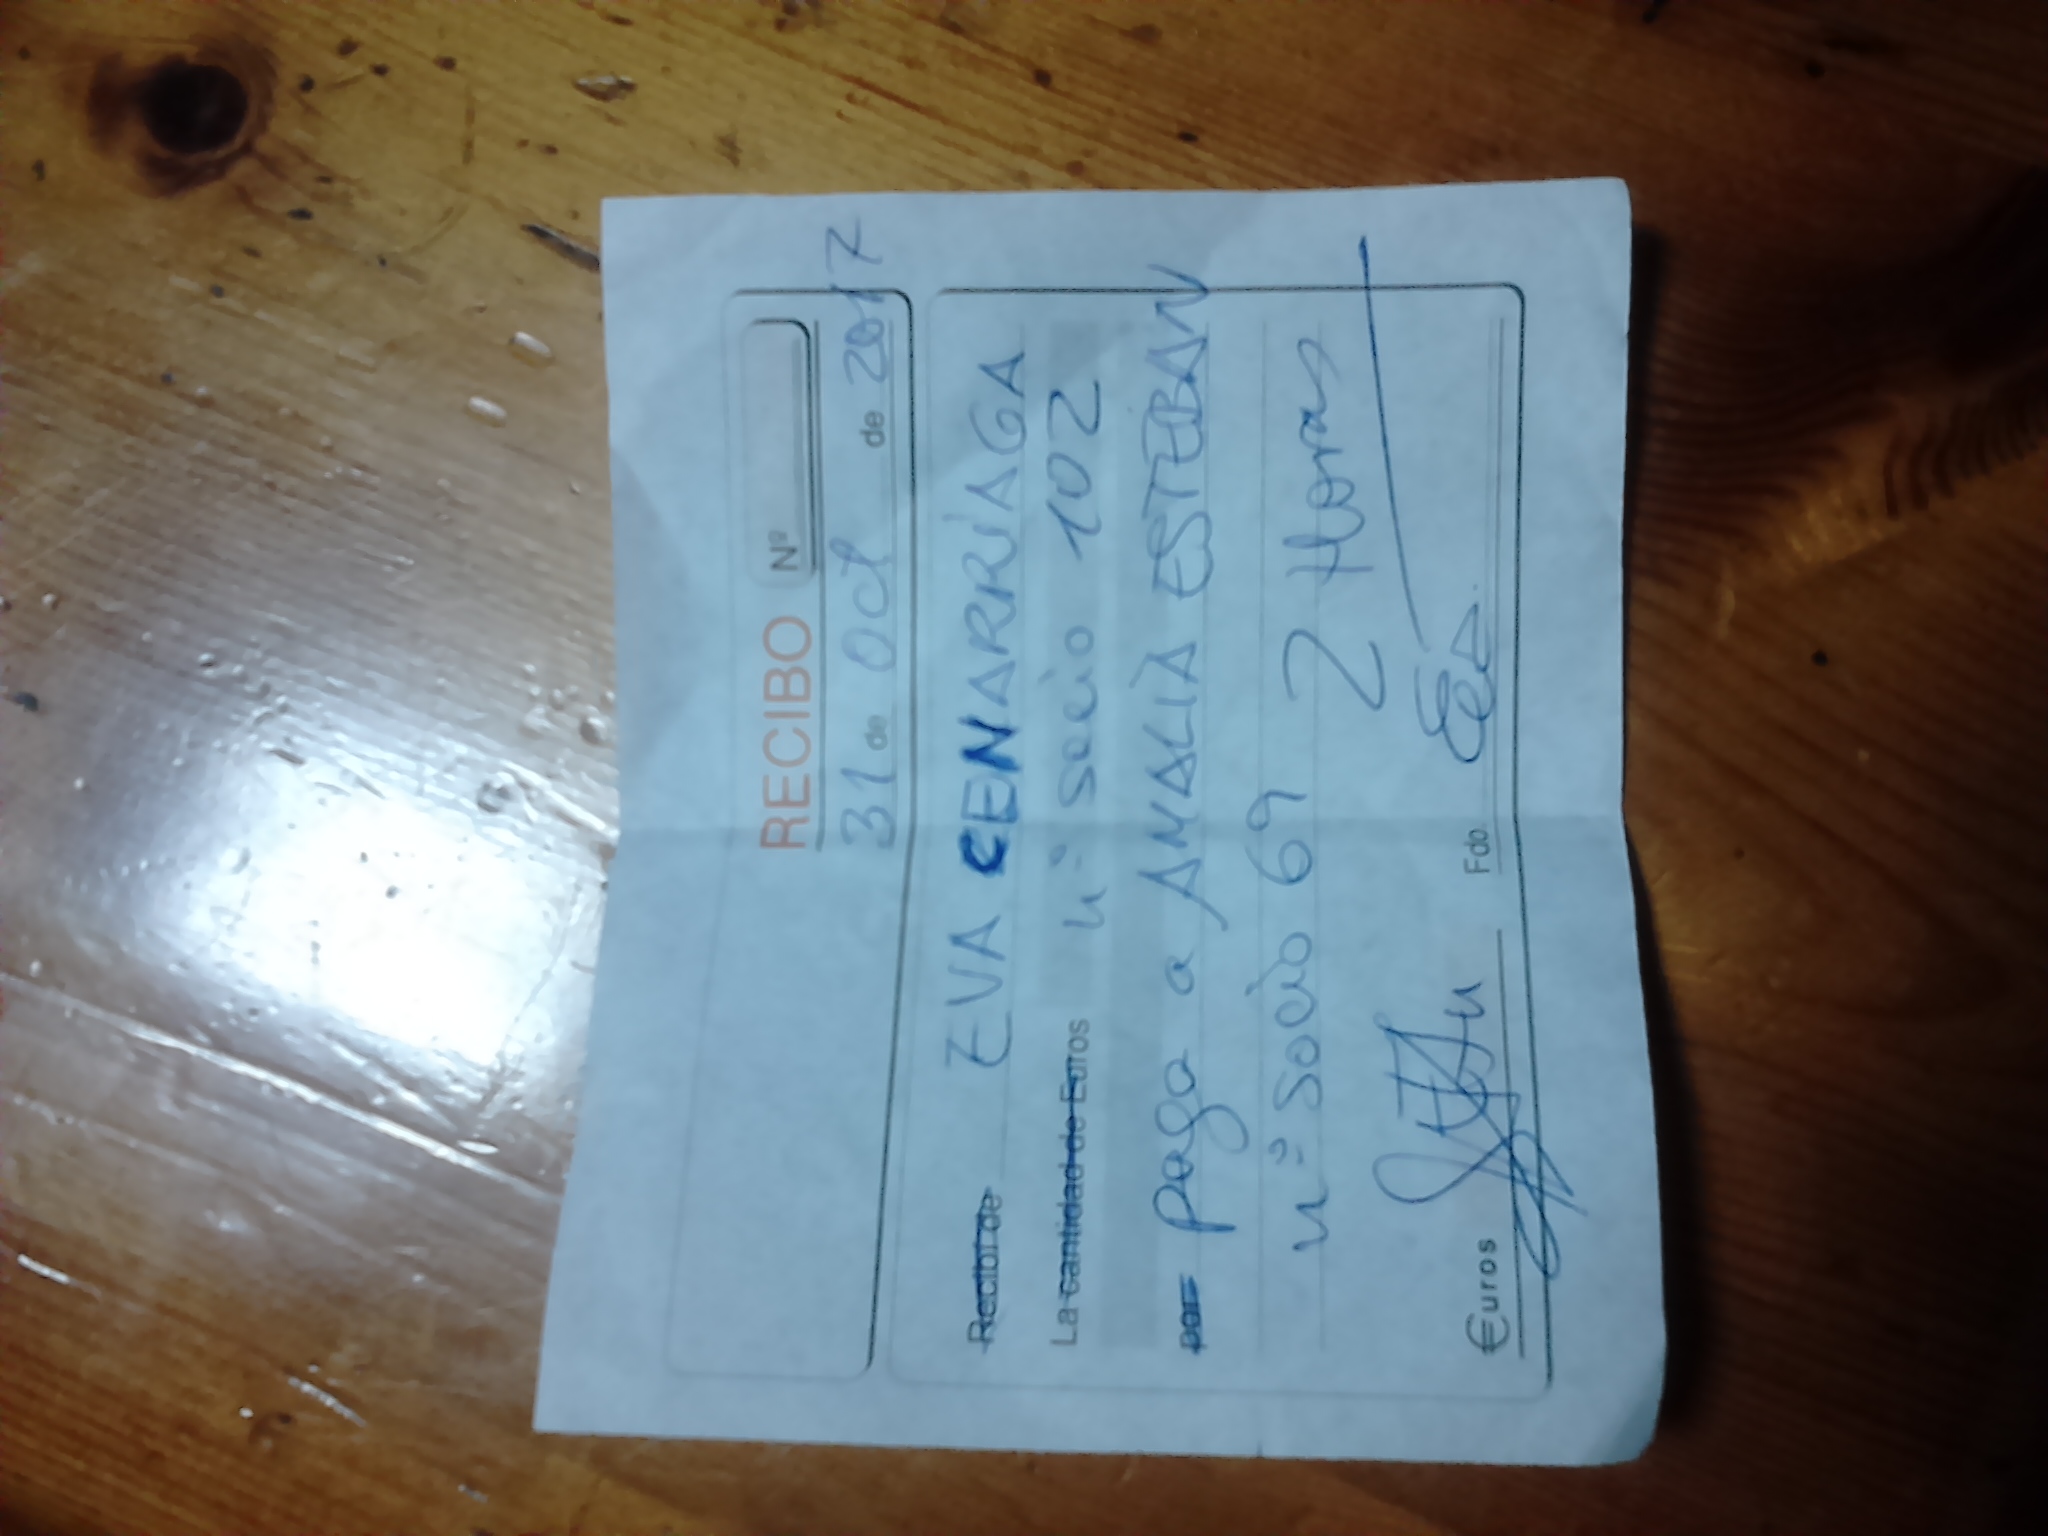 RECIBO Nº
31 de Oct de 2017
Recibí de EVA CENARRIAGA
La cantidad de Euros nº socio 102
por paga a AMALIA ESTEBAN
nº socio 69 2 Horas
€uros Fdo Eva